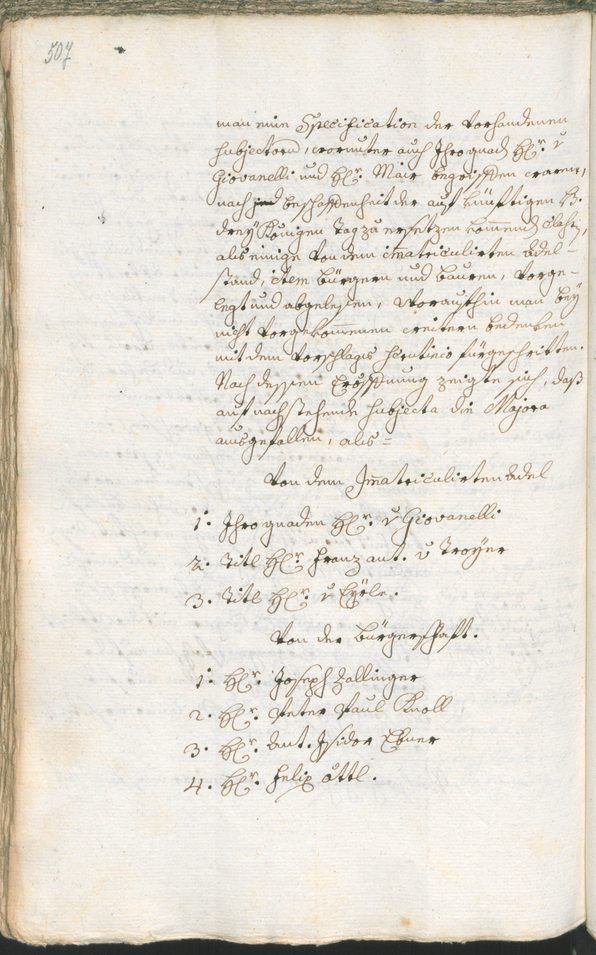 507
man eine Specification der vorhandenen
Subjectorum, worunter auch Ihro gnad. H[er]r. v
Giovanelli und H[er]r. Mair begriffen waren,
nach beschaffenheit der auf künftigen H.
drey Königen Tag zu ersetzen kommend. Claß,
als einige von dem imatriculirten Adel-
stand, item bürgern und bauren, vorge-
legt und abgelesen, worauf hin man bey
nicht vorgekommenen weitern bedenken
mit dem vorschlags Scrutinio fürgeschritten.
Nach dessen Eröffnung zeigte sich, daß
auf nachstehende Subjecta die Majora
ausgefallen, als =
Von dem Imatriculirten Adel
1. Ihro gnaden H[er]r. v Giovanelli
2. Titl H[er]r. Franz ant. v Troyer
3. Titl H[er]r. v Eyrle.
Von der bürgerschaft.
1. H[er]r. Joseph Zallinger
2. H[er]r. Peter Paul Knoll
3. H[er]r. Ant. Isidor Ebner
4. H[er]r. Felix öttl.